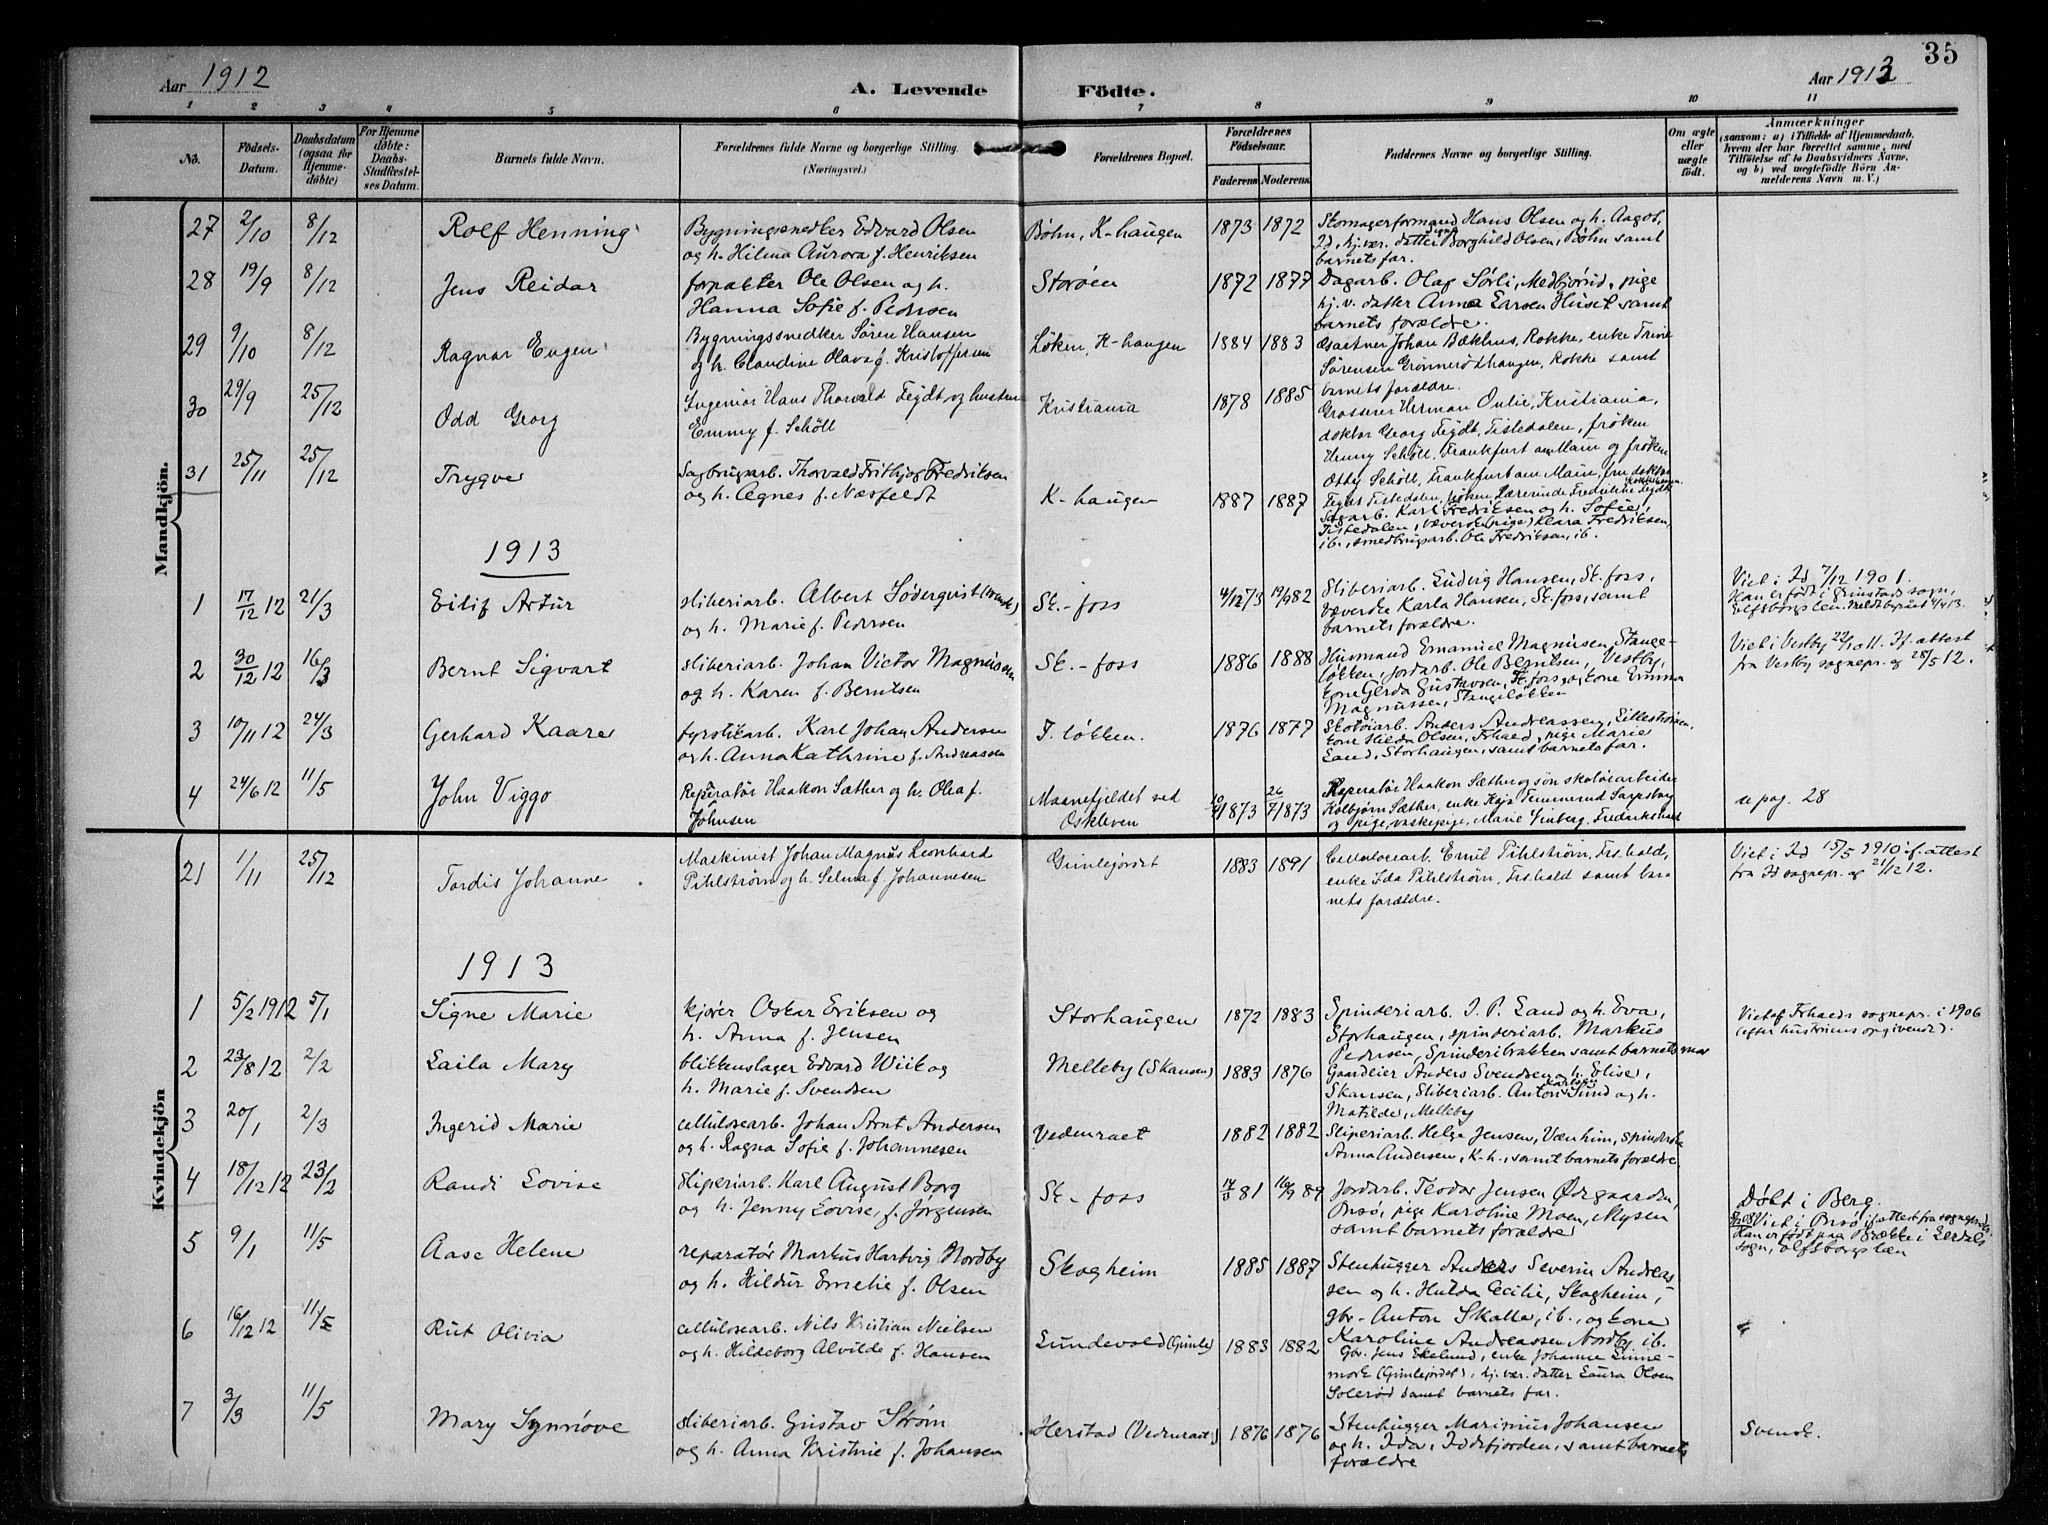 35
Aar 1912
A. Levende
Födte.
Aar 1913
1 2 3 4 5 6 7 8 9 10 11
No.
Födsels-Datum.
Daabsdatum (ogsaa for Hjemme-döbte)
For Hjemme döbte: Daabs-Stadfæstel-ses Datum.
Barnets fulde Navn.
Forældrenes fulde Navne og borgerlige Stilling.
(Næringsvei.)
Forældrenes Bopæl.
Forældrenes Födselsaar.
Faderens Moderens
Faddernes Navne og borgerlige Stilling.
Om ægte eller uægte födt.
Anmærkninger
(saasom: a) i Tilfælde af Hjemmedaab, hvem der har forrettet samme, med Tilföielse af to Daabsvidners Navne, og b) ved uægtefödte Börn An-melderens Navn m. V.)
Mandkjön.
27 2/10 8/12 Rolf Henning
Bygningssnedker Edvard Olsen
og h. Hilma Aurora f. Henriksen
Bøhn, K-haugen 1873 1872
Skomagerformand Hans Olsen og h. Aagot,
Id, hj. vær. datter Signe Borghild Olsen, Bøhn samt
barnets far.
28 19/9 8/12 Jens Reidar
forpakter Ole Olsen og h.
Hanna Sofie f. Pedersen
Storøen 1872 1877
Dagarb. Olaf Sørli, Medbjørud, pige
hj. v. datter Anna Larsen Huset samt
barnets forældre.
29 9/10 8/12 Ragnar Eugen
Bygningssnedker Søren Hansen
og h. Claudine Olava f. Kristoffersen
Løken, K-haugen 1884 1883
Gartner Johan Bækhus, Rokke, enke Trine
Sørensen Grønnerødhaugen, Rokke samt
barnets forældre.
30 29/9 25/12 Odd Georg
Ingeniør Hans Thorvald Feydt og hustru
Emmy f. Schöll
Kristiania 1878 1885
Grosserer Herman Onlie, Kristiania,
doktor Georg Feydt, Tistedalen, frøken
Henny Schöll, Frankfurt am Main og frøken
Otty Schöll, Frankfurt am Main, fru doktor
Feydt Tistedalen, frøken Lærerinde Fredrikke Feydt
31 25/11 25/12 Trygve
Sagbrugsarb. Thorvald Fritbjog Fredriksen
og h. Agnes f. Næsfeldt
K-haugen 1887 1887
Sagarb. Karl Fredriksen og h. Sofie,
Tistedalen, væverske (pige) Klara Fredriksen,
ib., smedbrugsarb. Ole Fredriksen, ib.
1913
1 17/12 12 21/3 Eilif Artur
sliberiarb. Albert Söderqvist (svensk)
og h. Marie f. Pedersen
Sk.-foss 4/12 73 19/9 82
Sliberiarb. Ludvig Hansen, Sk. foss,
væverske Karla Hansen, Sk. foss, samt
barnets forældre.
Viet i Id 7/12 1901.
Han er født i Grinstads sogn,
Elfsborgs len. Meldt byraaet 4/4 13.
2 30/12 12 16/3 Bernt Sigvart
sliberiarb. Johan Victor Magnussen
og h. Karen f. Berntsen
Sk.-foss 1886 1888
Husmand Emanuel Magnusen, Stange-
løkken, jordarb. Ole Berntsen, Vestby,
kone Gerda Gustavsen, Sk. foss og kone Emma
Magnussen, Stangeløkken
Viet i Vestby 22/10 11. Jf. attest
fra Vestby sognepr. og 28/5 12.
3 10/11 12 24/3 Gerhard Kaare
fyrstikarb. Karl Johan Andersen
og h. Anna Kathrine f. Andreassen
T. løkken. 1876 1877
Skotøiarb. Anders Andreassen, Lillestrømen,
kone Hilda Olsen, Frhald, pige Marie
Land, Storhaugen, samt barnets far.
4 24/6 12 11/5 John Viggo
Reperatør Haakon Sæther og h. Olea f.
Johnsen
Maanefjeldet ved
Oskleven
1873 26/7 1873
Reperatør Haakon Sæther og søn skotøiarbeider
Kolbjørn Sæther, enke Kaja Tennerud Sarpsborg
og pige, vaskepige, Marie Vinberg, Fredrikshald
se pag. 28
Kvindekjön
21 1/11 25/12 Tordis Johanne
Maskinist Johan Magnus Leonhard
Pihlstrøm og h. Selma f. Johannesen
Grimlejordet 1883 1891
Cellulosearb. Emil Pihlstrøm, Frs.hald,
enke Ida Pihlstrøm, Frs.hald samt bar-
nets forældre.
Viet i Id 15/5 1910 jf. attest
fra Id sognepr. og 21/12 12.
1913
1 5/2 1912 5/1 Signe Marie
kjører Oskar Eriksen og
h. Anna f. Jensen
Storhaugen 1872 1883
Spinderiarb. I. P. Land og h. Eva,
Storhaugen, spinderiarb. Markus
Pedersen, Spinderibakken samt barnets mor
Viet af Frhalds sognepr. i 1906
(efter hustruens opgivende).
2 23/8 12 2/2 Laila Mary
blikkenslager Edvard Wiik og
h. Marie f. Svendsen
Melleby (Skansen) 1883 1876
Gaardeier Anders Svendsen og h. Elise,
Skansen, Sliberiarb. Anton Karlsen Sund og h.
Matilde, Melleby
3 20/1 2/3 Ingerid Marie
cellulosearb. Johan Arnt Andersen
og h. Ragna Sofie f. Johannesen
Vedenraet 1882 1882
Sliperiarb. Helge Jensen, Venheim, spinderske
Anna Andersen, K-h., samt barnets forældre.
4 18/12 12 23/2 Randi Lovise
Sliperiarb. Karl August Borg
og h. Jenny Lovise, f. Jørgensen
Sk-foss 14/3 81 16/9 89
Jordarb. Teodor Jensen Ødegaarden,
Onsø, pige Karoline Moen, Mysen
samt barnets forældre
Døbt i Berg.
Viet i Onsø jf attest fra sognepr.
Han er født paa Brække i Lerdals
sogn, Elfsborgs len
5 9/1 11/5 Aase Helene
reparatør Markus Hartvig Nordby
og h. Hildur Emelie f. Olsen
Skogheim 1885 1887
Stenhugger Anders Severin Andreas-
sen og h. Hulda Cecilie, Skogheim,
gbr. Anton Skalle, ib., og kone
Karoline Andreassen Nordby ib.
6 16/12 12 11/5 Rut Olivia
cellulosearb. Nils Kristian Nielsen
og h. Hildeborg Alvilde f. Hansen
Lundevold (Grimle) 1883 1882
Gbr. Jens Ekelund, enke Johanne Linne-
mork (Grimlejordet), hj. vær. datter Laura Olsen
Solerød samt barnets far.
7 3/3 11/5 Mary Synnøve
sliberiarb. Gustav Strøm
og h. Anna Kristine f. Johansen
Herstad (Vedenraet) 1876 1876
Stenhugger Marinius Johansen
og h. Ida, Iddefjorden, samt barnets
forældre
Svensk.